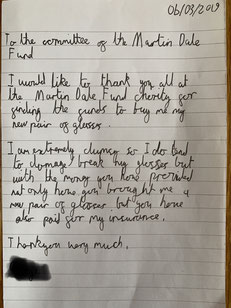 06/03/2019
To the committee of the Martin Dale
Fund
I would like to thank you all at
the Martin Dale Fund charity for
finding the funds to buy me my
new pair of glasses.
I am extremely clumsy so I do tend
to damage/break my glasses but
with the money you have provided
not only have you brought me a
new pair of glasses but you have
also paid for my insurance.
Thankyou very much.